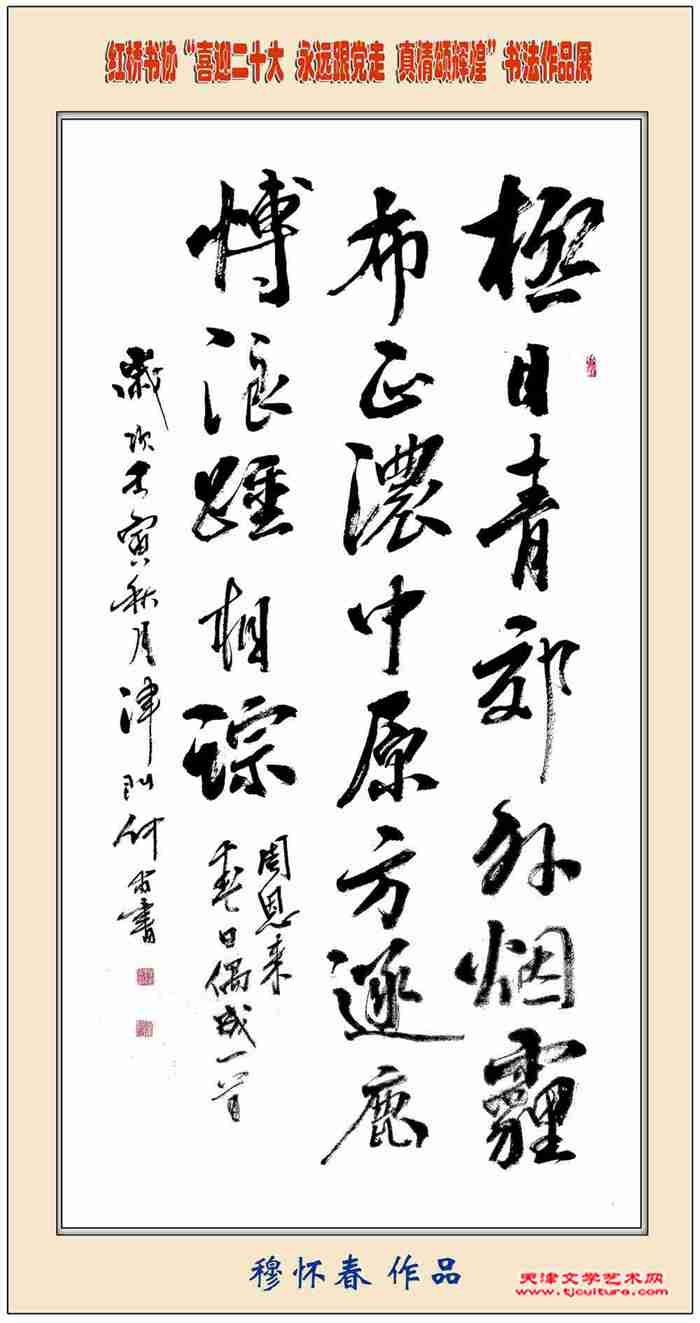 红桥书协“喜迎二十大 永远跟党走 真情颂辉煌”书法作品展
極目青郊外烟霾
布正濃中原方逐鹿
愽浪踵相踪
周恩来
春日偶成一首
歲次壬寅秋月津门書
穆怀春 作品
天津文学艺术网
www.tjculture.com